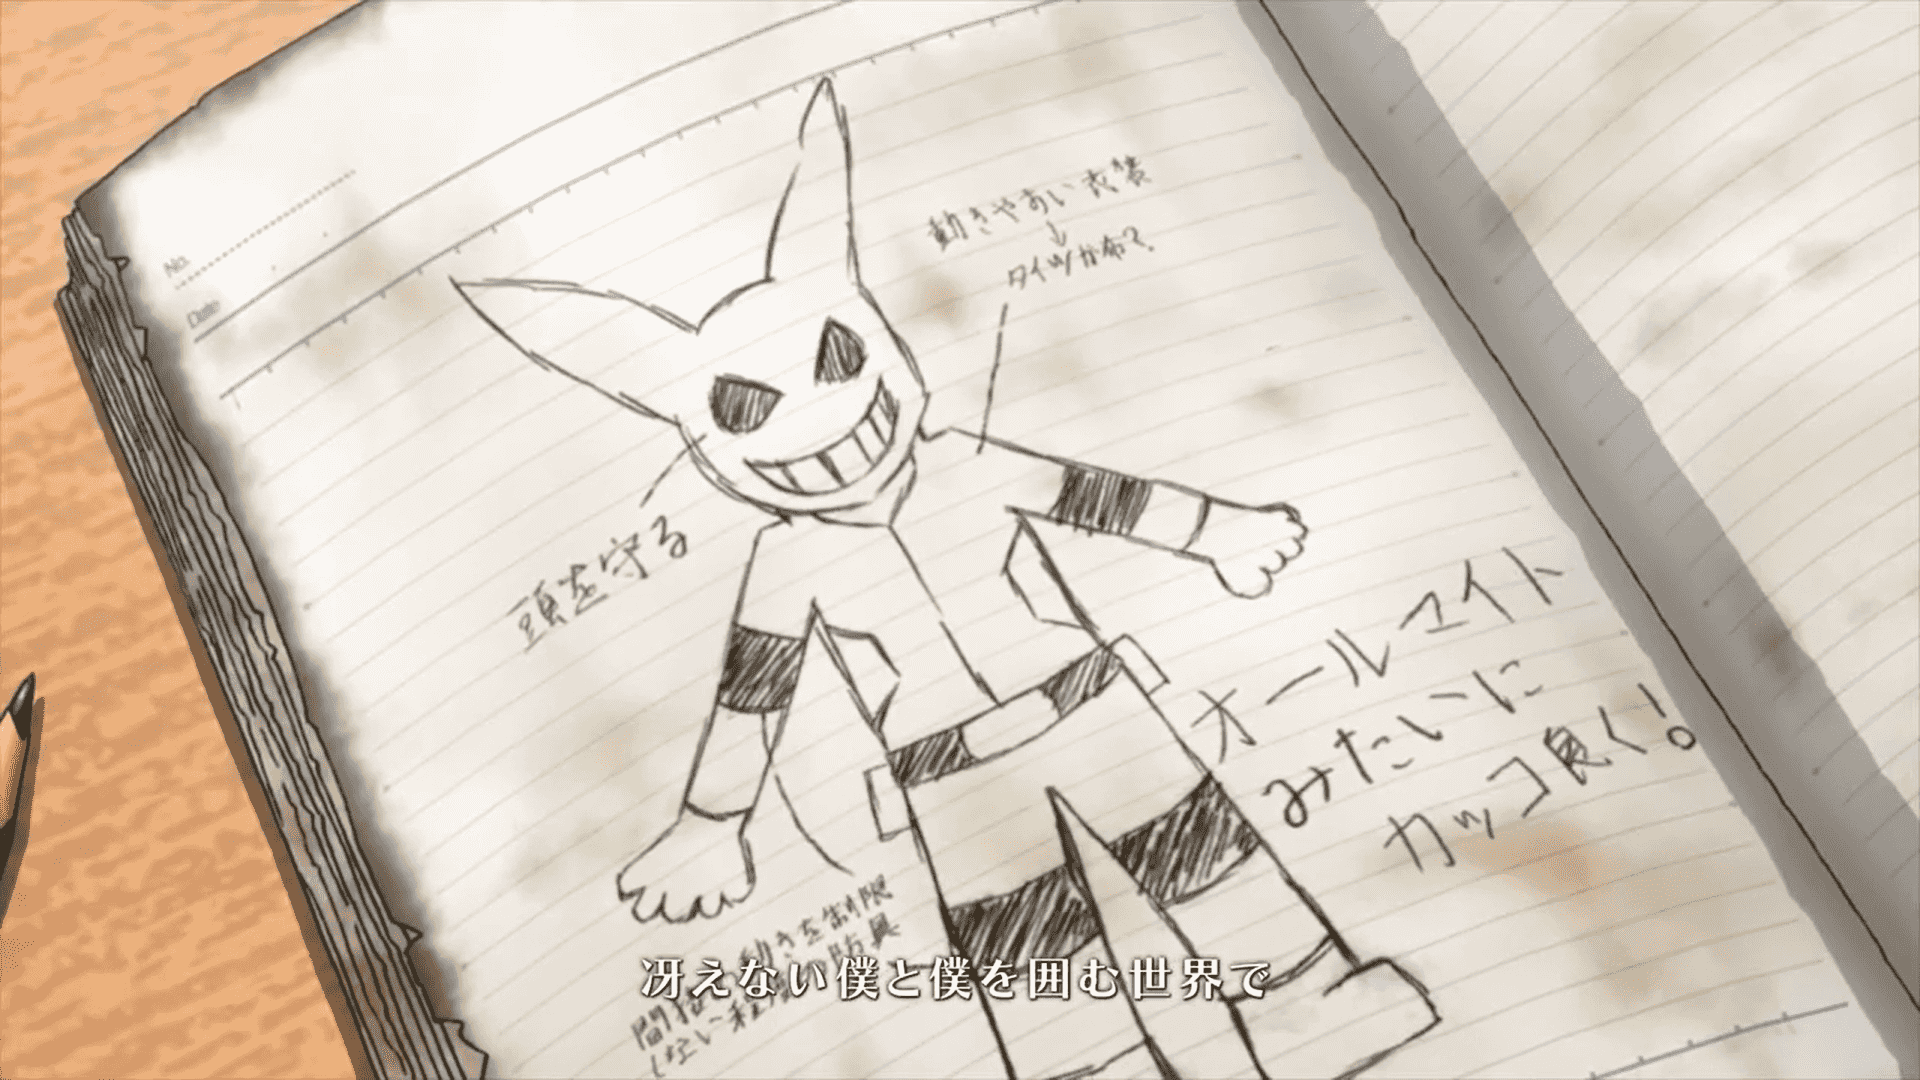 No.
Date
動きやすい衣装
↓
タイツが命?
頭を守る
オールマイト
みたいに
カッコ良く!
動きを制限
しない程度の防具
冴えない僕と僕を囲む世界で